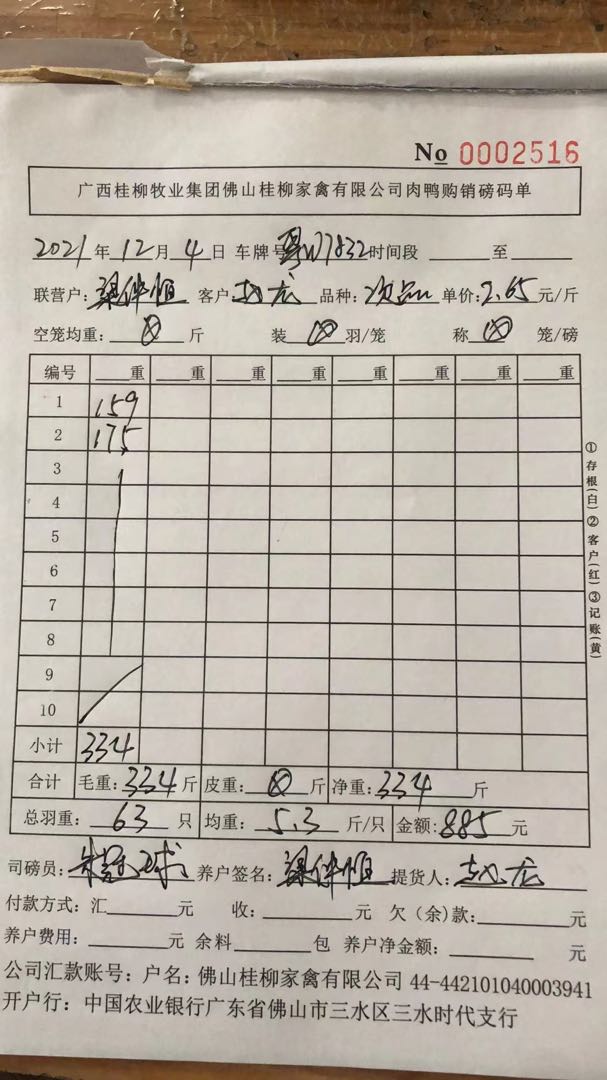 No 0002516
广西桂柳牧业集团佛山桂柳家禽有限公司肉鸭购销磅码单
2021年12月4日 车牌号粤W7832时间段____至____
联营户:梁伴恒 客户赵龙 品种:次品 单价:2.65元/斤
空笼均重:⊗斤 装⊗羽/笼 称⊗笼/磅
编号 ___重 ___重 ___重 ___重 ___重 ___重 ___重 ___重
1 159
2 175
3
4
5
6
7
8
9
10
小计 334
合计 毛重:334斤 皮重:⊗斤 净重:334斤
总羽重:63只 均重:5.3斤/只 金额:885元
司磅员: 养户签名:梁伴恒 提货人:赵龙
付款方式:汇____元 收:____元 欠(余)款:____元
养户费用:____元 余料____包 养户净金额:____元
公司汇款账号:户名:佛山桂柳家禽有限公司 44-442101040003941
开户行:中国农业银行广东省佛山市三水区三水时代支行
①存根(白)②客户(红)③记账(黄)